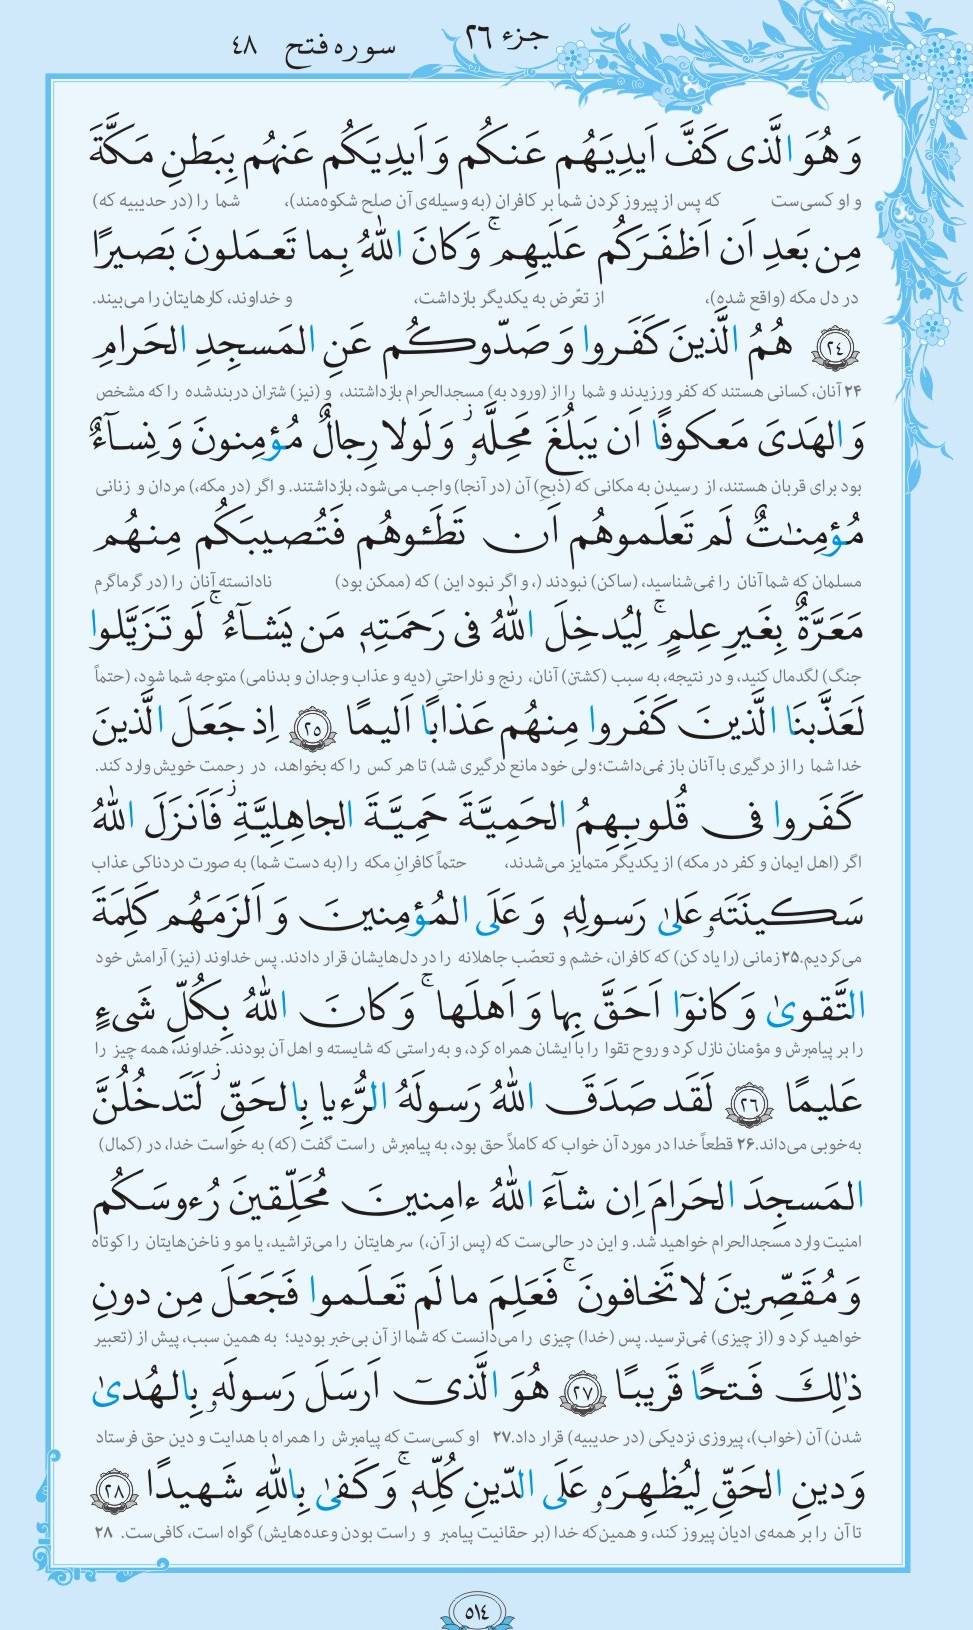 جزء ۲۶
سوره فتح ۴۸
وَ هُوَ الَّذی کَفَّ اَیدِیَهُم عَنکُم وَ اَیدِیَکُم عَنهُم بِبَطنِ مَکَّةَ
و او کسی‌ست که پس از پیروز کردن شما بر کافران (به وسیله‌ی آن صلح شکوه‌مند)، شما را (در حدیبیه که)
مِن بَعدِ اَن اَظفَرَکُم عَلَیهِم ۚ وَ کانَ اللّٰهُ بِما تَعمَلونَ بَصیرًا
در دل مکه (واقع شده)، از تعّرض به یکدیگر بازداشت، و خداوند، کارهایتان را می‌بیند.
﴿٢٤﴾ هُمُ الَّذینَ کَفَروا وَ صَدّوکُم عَنِ المَسجِدِ الحَرامِ
۲۴ آنان، کسانی هستند که کفر ورزیدند و شما را از (ورود به) مسجدالحرام بازداشتند، و (نیز) شتران دربندشده را که مشخص
وَ الهَدیَ مَعکوفًا اَن یَبلُغَ مَحِلَّهٗ ۚ وَ لَو لا رِجالٌ مُؤمِنونَ وَ نِسآءٌ
بود برای قربان هستند، از رسیدن به مکانی که (ذبحِ) آن (در آنجا) واجب می‌شود، بازداشتند. و اگر (در مکه،) مردان و زنانی
مُؤمِنٰتٌ لَم تَعلَموهُم اَن تَطَـٔوهُم فَتُصیبَکُم مِنهُم
مسلمان که شما آنان را نمی‌شناسید، (ساکن) نبودند (، و اگر نبود این) که (ممکن بود) نادانسته آنان را (در گرماگرم
مَعَرَّةٌ بِغَیرِ عِلمٍ ۚ لِیُدخِلَ اللّٰهُ فی رَحمَتِهٖ مَن یَشآءُ ۚ لَو تَزَیَّلوا
جنگ) لگدمال کنید، و در نتیجه، به سبب (کشتن) آنان، رنج و ناراحتیِ (دیه و عذاب وجدان و بدنامی) متوجه شما شود، (حتماً
لَعَذَّبنَا الَّذینَ کَفَروا مِنهُم عَذابًا اَلیمًا ﴿٢٥﴾ اِذ جَعَلَ الَّذینَ
خدا شما را از درگیری با آنان باز نمی‌داشت؛ ولی خود مانع درگیری شد) تا هر کس را که بخواهد، در رحمت خویش وارد کند.
کَفَروا فی قُلوبِهِمُ الحَمِیَّةَ حَمِیَّةَ الجاهِلِیَّةِ ز فَاَنزَلَ اللّٰهُ
اگر (اهل ایمان و کفر در مکه) از یکدیگر متمایز می‌شدند، حتماً کافرانِ مکه را (به دست شما) به صورت دردناکی عذاب
سَکینَتَهٗ عَلیٰ رَسولِهٖ وَ عَلَی المُؤمِنینَ وَ اَلزَمَهُم کَلِمَةَ
می‌کردیم. ۲۵ زمانی (را یاد کن) که کافران، خشم و تعصّب جاهلانه را در دل‌هایشان قرار دادند. پس خداوند (نیز) آرامش خود
التَّقویٰ وَ کانوٓا اَحَقَّ بِها وَ اَهلَها ۚ وَ کانَ اللّٰهُ بِکُلِّ شَیءٍ
را بر پیامبرش و مؤمنان نازل کرد و روح تقوا را با ایشان همراه کرد، و به راستی که شایسته و اهل آن بودند. خداوند، همه چیز را
عَلیمًا ﴿٢٦﴾ لَقَد صَدَقَ اللّٰهُ رَسولَهُ الرُّءیا بِالحَقِّ ز لَتَدخُلُنَّ
به‌خوبی می‌داند. ۲۶ قطعاً خدا در مورد آن خواب که کاملاً حق بود، به پیامبرش راست گفت (که) به خواست خدا، در (کمال)
المَسجِدَ الحَرامَ اِن شآءَ اللّٰهُ ءامِنینَ مُحَلِّقینَ رُءوسَکُم
امنیت وارد مسجدالحرام خواهید شد. و این در حالی‌ست که (پس از آن،) سرهایتان را می‌تراشید، یا مو و ناخن‌هایتان را کوتاه
وَ مُقَصِّرینَ لا تَخافونَ ۚ فَعَلِمَ ما لَم تَعلَموا فَجَعَلَ مِن دونِ
خواهید کرد و (از چیزی) نمی‌ترسید. پس (خدا) چیزی را می‌دانست که شما از آن بی‌خبر بودید؛ به همین سبب، پیش از (تعبیر
ذٰلِكَ فَتحًا قَریبًا ﴿٢٧﴾ هُوَ الَّذیٓ اَرسَلَ رَسولَهٗ بِالهُدیٰ
شدن) آن (خواب)، پیروزی نزدیکی (در حدیبیه) قرار داد. ۲۷ او کسی‌ست که پیامبرش را همراه با هدایت و دین حق فرستاد
وَ دینِ الحَقِّ لِیُظهِرَهٗ عَلَی الدّینِ کُلِّهٖ ۚ وَ کَفیٰ بِاللّٰهِ شَهیدًا ﴿٢٨﴾
تا آن را بر همه‌ی ادیان پیروز کند، و همین‌که خدا (بر حقانیت پیامبر و راست بودن وعده‌هایش) گواه است، کافی‌ست. ۲۸
٥١٤